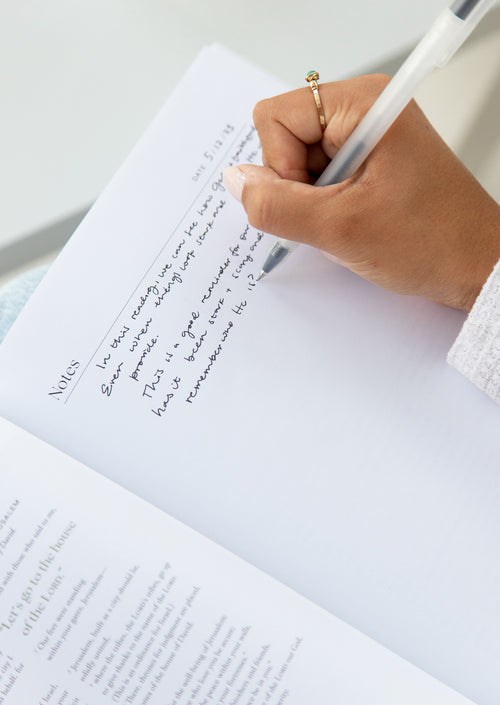 Notes
DATE 5.12.23
In this reading, we can see how God
Even when things look stark and
provide.
This is a good reminder for our
has it been stark + scary and
remember who He is?
USALEM
of David.
ed with those who said to me,
"Let's go to the house
of the LORD."
Our feet were standing
within your gates, Jerusalem—
Jerusalem, built as a city should be,
solidly united,
where the tribes, the LORD's tribes, go up
to give thanks to the name of the LORD.
(This is an ordinance for Israel.)
There, thrones for judgment are placed,
thrones of the house of David.
for the well-being of Jerusalem:
who love you be secure;
peace within your walls,
your fortresses."
brothers and friends,
be in you."
of the LORD our God,